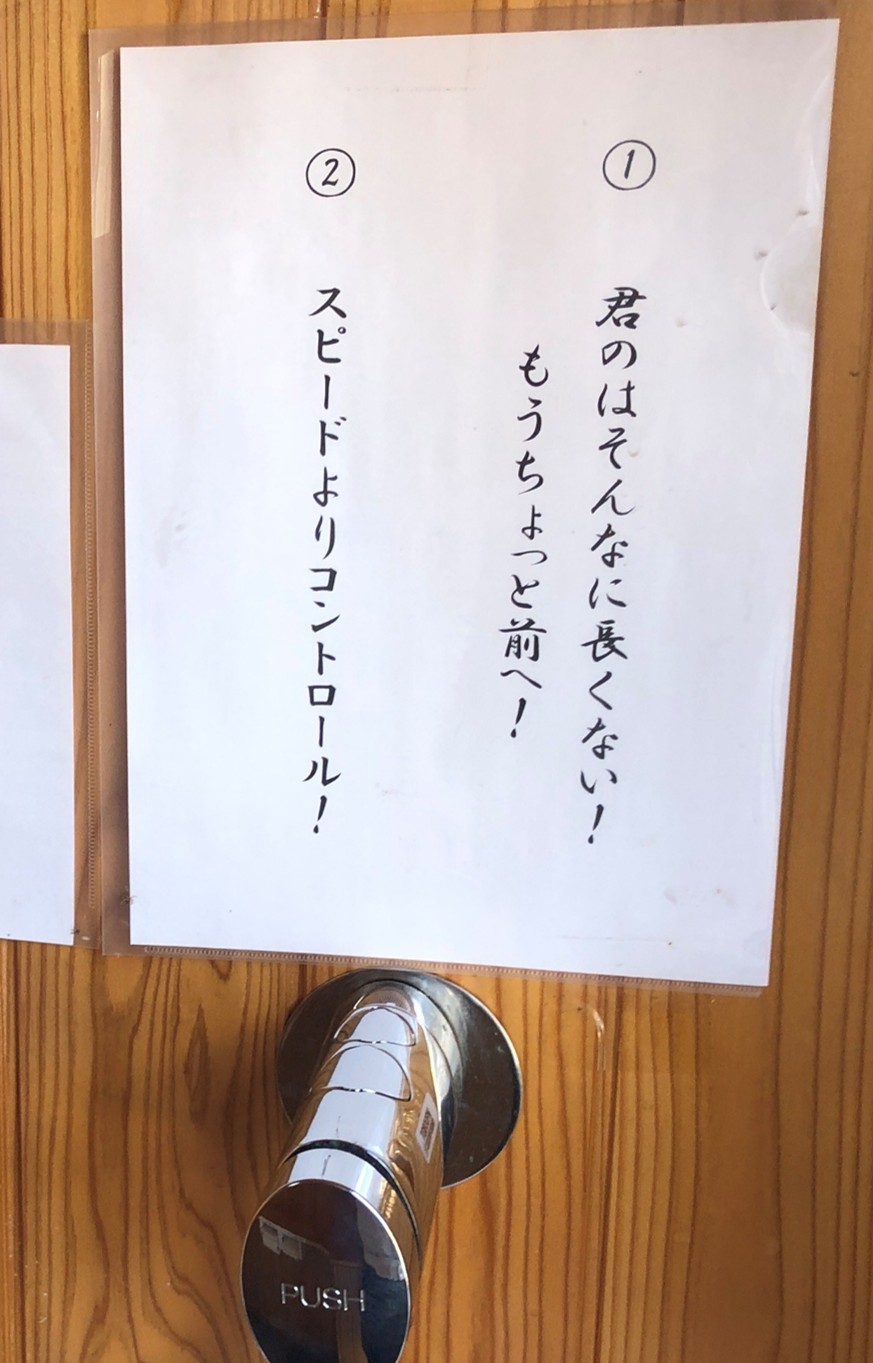 ①
君のはそんなに長くない!
もうちょっと前へ!
②
スピードよりコントロール!
PUSH